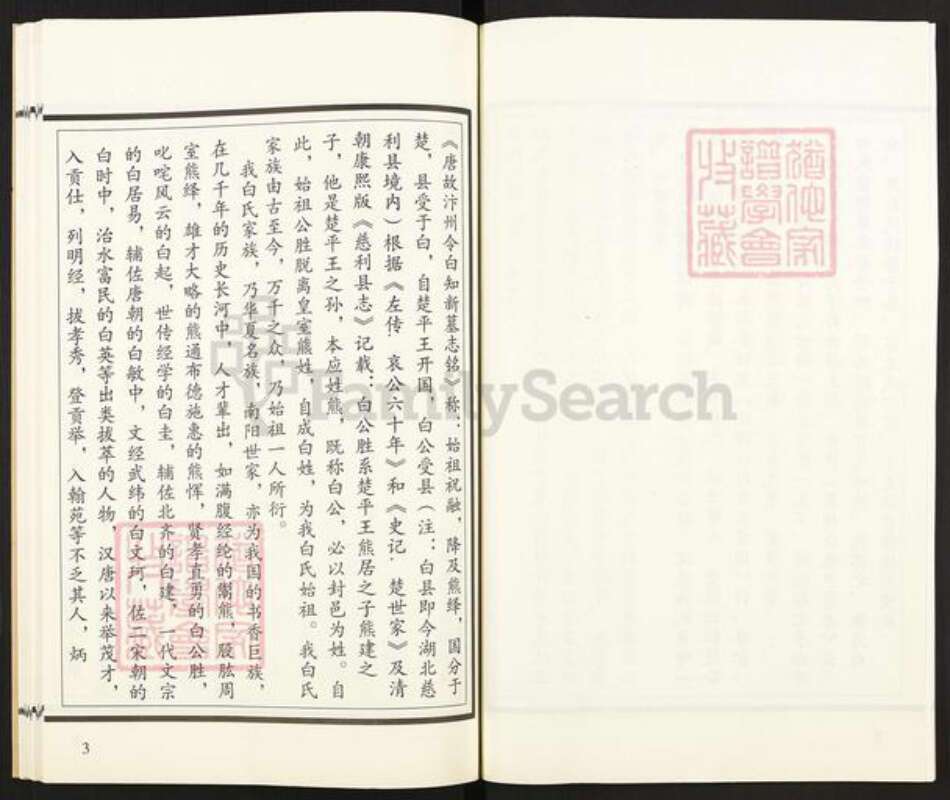 《唐故汴州令白知新墓志铭》称：始祖祝融，降及熊绎，国分于
楚，县受于白，自楚平王开国，白公受县（注：白县即今湖北慈
利县境内）根据《左传．哀公六十年》和《史记．楚世家》及清
朝康熙版《慈利县志》记载：白公胜系楚平王熊居之子熊建之
子，他是楚平王之孙，本应姓熊，既称白公，必以封邑为姓。自
此，始祖公胜脱离皇室熊姓，自成白姓，为我白氏始祖。我白氏
家族由古至今，万千之众，乃始祖一人所衍。
我白氏家族，乃华夏名族，南阳世家，亦为我国的书香巨族，
在几千年的历史长河中，人才辈出，如满腹经纶的鬻熊，股肱周
室熊绎，雄才大略的熊通布德施惠的熊恽，贤孝直勇的白公胜，
叱咤风云的白起，世传经学的白圭，辅佐北齐的白建，一代文宗
的白居易，辅佐唐朝的白敏中，文经武纬的白文珂，佐二宋朝的
白时中，治水富民的白英等出类拔萃的人物，汉唐以来举茂才，
入贡仕，列明经，拔孝秀，登贡举，入翰苑等不乏其人，炳
3
猶他家
譜學會
收藏
FamilySearch